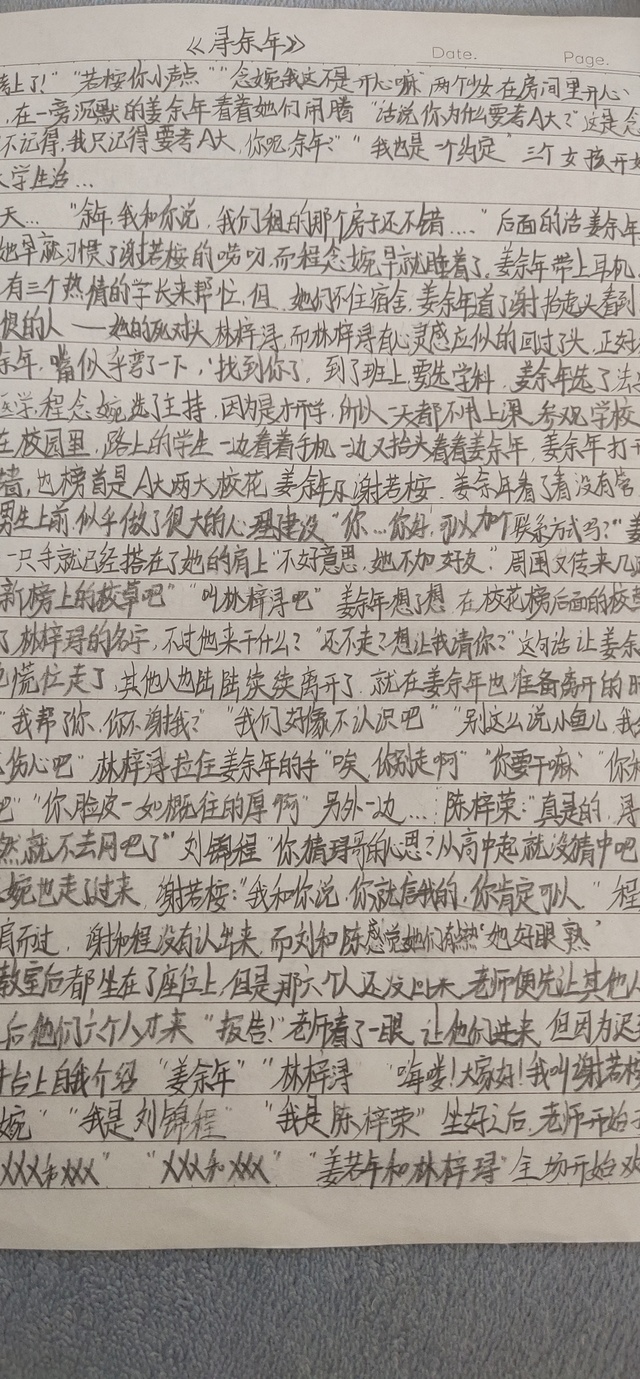 《寻余年》
Date. Page.
考上了！” “若桉你小声点” “念婉我这不是开心嘛” 两个少女在房间里开心、
，在一旁沉默的姜余年看着她们闹腾 “话说你为什么要考A大？” 这是念
不记得，我只记得要考A大，你呢余年？” “我也是一个约定” 三个女孩开始
大学生活…
天… “余年，我和你说，我们租的那个房子还不错….” 后面的话姜余年
她早就习惯了谢若桉的唠叨，而程念婉早就睡着了，姜余年带上耳机，
有三个热情的学长来帮忙，但，她们不住宿舍，姜余年 谢 抬起头看到
恨的人——她的死对头林梓浔，而林梓浔有心灵感应似的回过了头，正好
余年，嘴似乎弯了一下，‘找到你了，到了班上，要选学科，姜余年选了法
医学，程念婉选了主持，因为是才开学，所以一天都不用上课，参观学校
在校园里，路上的学生一边看着手机一边又抬头看着姜余年，姜余年打开
墙，也榜首是A大两大校花，姜余年及谢若桉，姜余年看了看没有常
男生上前，似乎做了很大的心理建设 “你…你好，可以加个联系方式吗？” 姜
一只手就已经搭在了她的肩上 “不好意思，她不加好友” 周围又传来几
新榜上的校草吧” “叫林梓浔吧” 姜余年想了想，在校花榜后面的校草
了林梓浔的名字，不过他来干什么？ “还不走？想让我请你？” 这句话让姜余
也慌忙走了，其他人也陆陆续续离开了，就在姜余年也准备离开的时
“我帮了你，你不谢我？” “我们好像不认识吧” “别这么说小鱼儿，我
伤心吧” 林梓浔拉住姜余年的手 “唉，你别走啊” “你要干嘛” “你
吧” “你脸皮一如概往的厚啊” 另外一边… 陈梓荣：“真是的，浔
然就不去网吧了” 刘锦程 “你猜浔哥的心思？从高中起就没猜中吧
婉也走了过来，谢若桉：“我和你说，你就信我的，你肯定可以” 程
肩而过，谢和程没有认出来，而刘和陈感觉她们有 ‘她好眼熟’
教室后都坐在了座位上，但是那六个人还没回来，老师便先让其他人
后他们六个人才来 “报告！” 老师看了一眼，让他们进来，但因为迟到
台上自我介绍 “姜余年” “林梓浔 “嗨喽！大家好！我叫谢若桉
婉” “我是刘锦程” “我是陈梓荣” 坐好之后，老师开始
XXX和XXX” “XXX和XXX” “姜若年和林梓浔” 全场开始欢